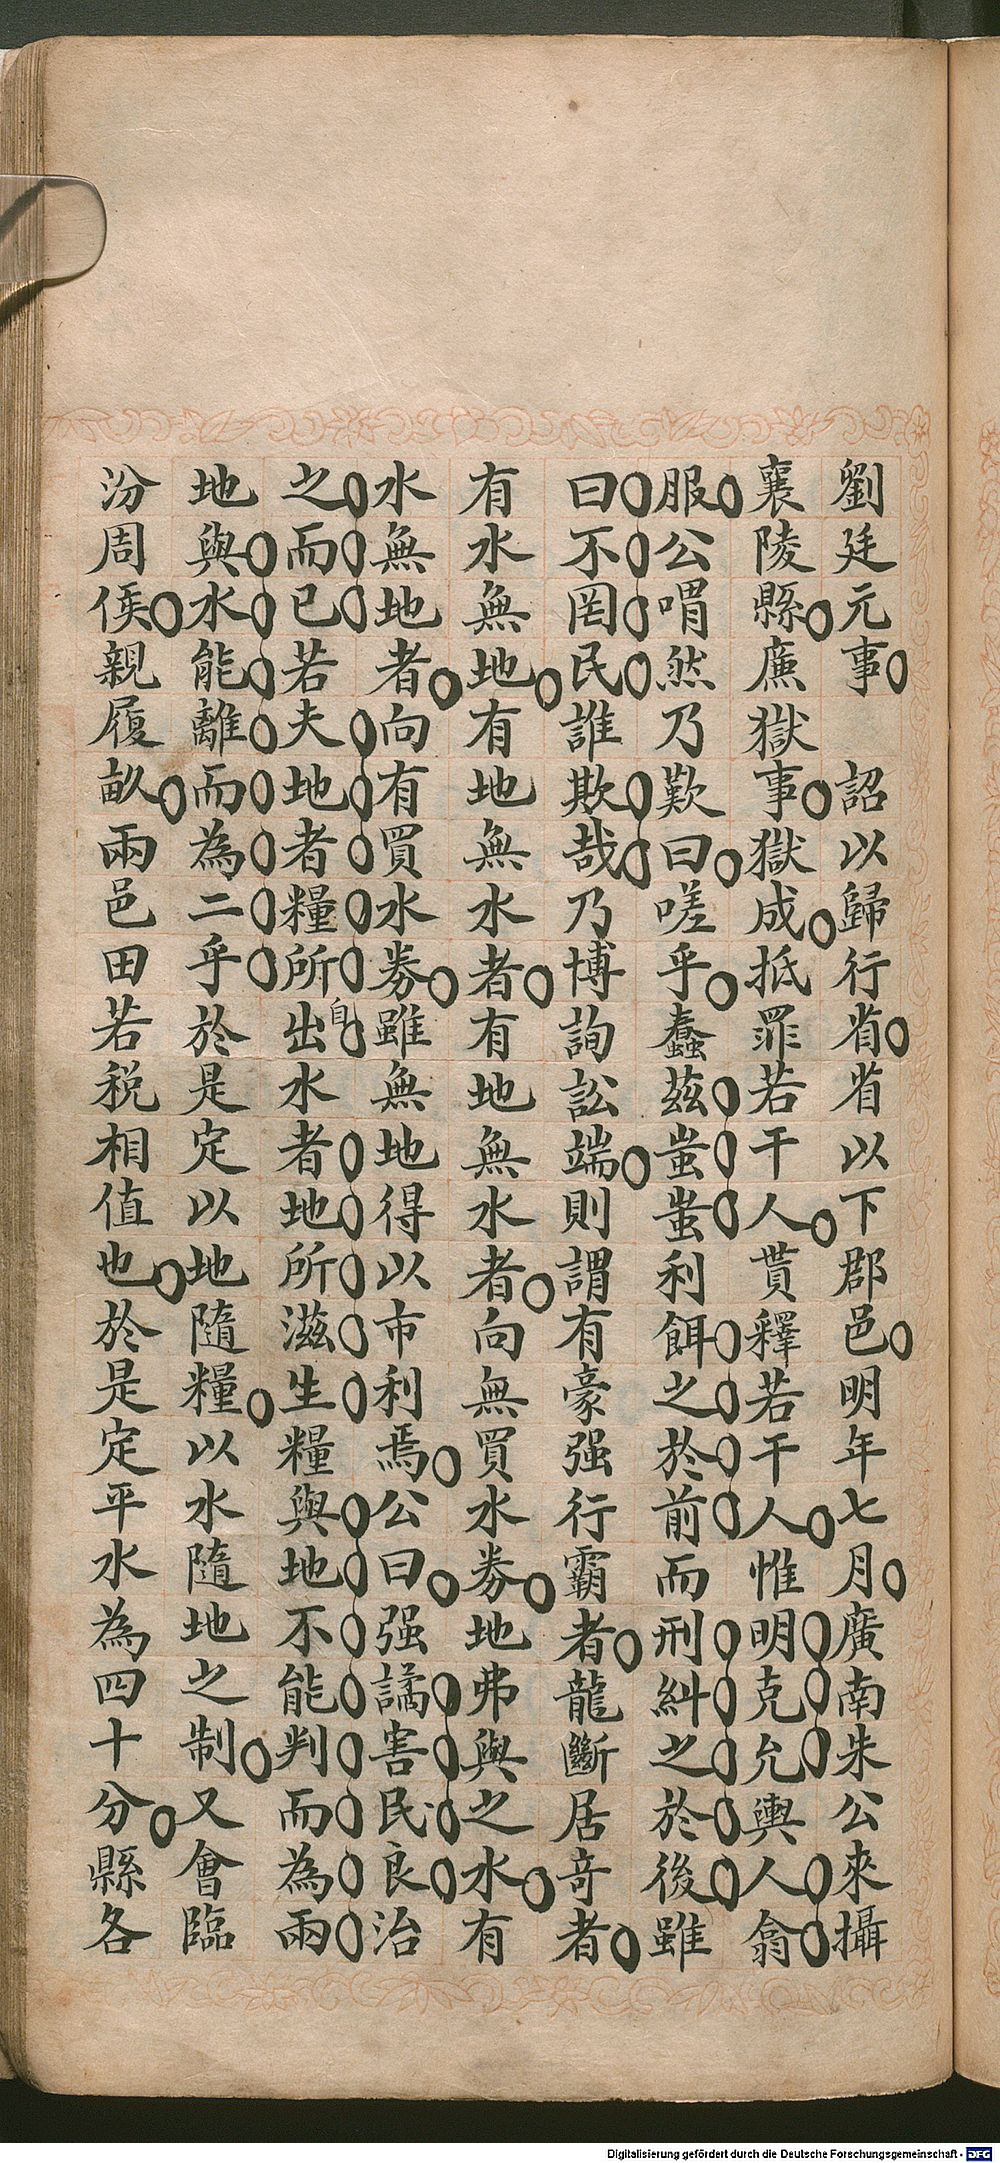 劉廷元事　詔以歸行省省以下郡邑明年七月廣南朱公來攝
襄陵縣廉獄事獄成抵罪若干人貰釋若干人惟明克允輿人翕
服公喟然乃歎曰嗟乎蠢茲蚩蚩利餌之於前而刑糾之於後雖
曰不罔民誰欺哉乃博詢訟端則謂有豪强行霸者龍斷居奇者
有水無地有地無水者有地無水者向無買水券地弗與之水有
水無地者向有買水券雖無地得以市利焉公曰强譎害民良治
之而已若夫地者糧所自出水者地所滋生糧與地不能判而為兩
地與水能離而為二乎於是定以地隨糧以水隨地之制又會臨
汾周侯親履畝兩邑田若税相值也於是定平水為四十分縣各
Digitalisierung gefördert durch die Deutsche Forschungsgemeinschaft - DFG